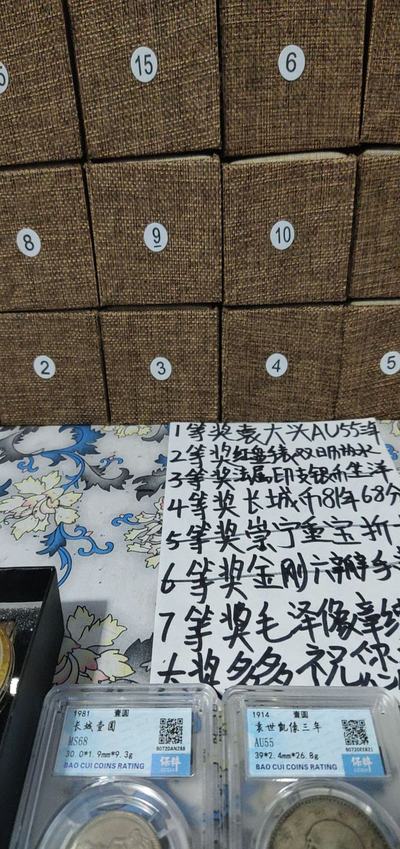 5
15
6
8
9
10
2
3
4
5
1等奖袁大头AU55年
2等奖红
3等奖法属印支银币坐洋
4等奖长城币81年68分
5等奖崇宁重宝折
6等奖金刚六瓣手
7等奖毛泽像章
大奖多多祝你
1981 壹圆
长城壹圆
MS68
30.0*1.9mm*9.3g
BAO CUI COINS RATING
保粹
1914 壹圆
袁世凯像三年
AU55
39*2.4mm*26.8g
BAO CUI COINS RATING
保粹